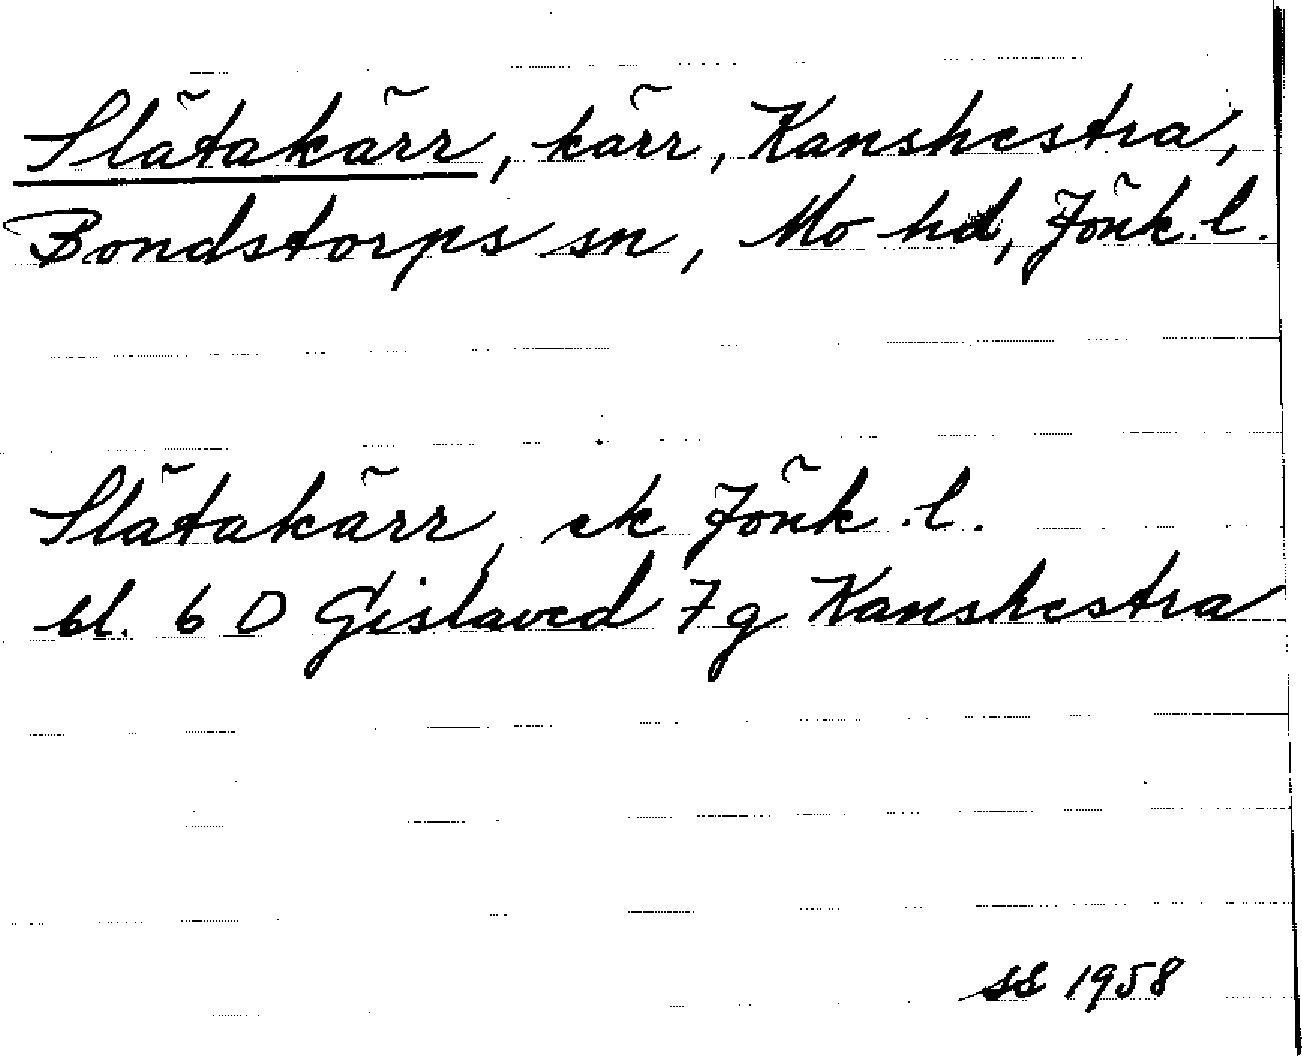 Slätakärr, kärr, Kanshestra,
Bondstorps sn, Mo hd, Jönk.l.
Slätakärr, ek Jönk.l.
bl. 6 D Gislaved 7g Kanshestra
SS 1958